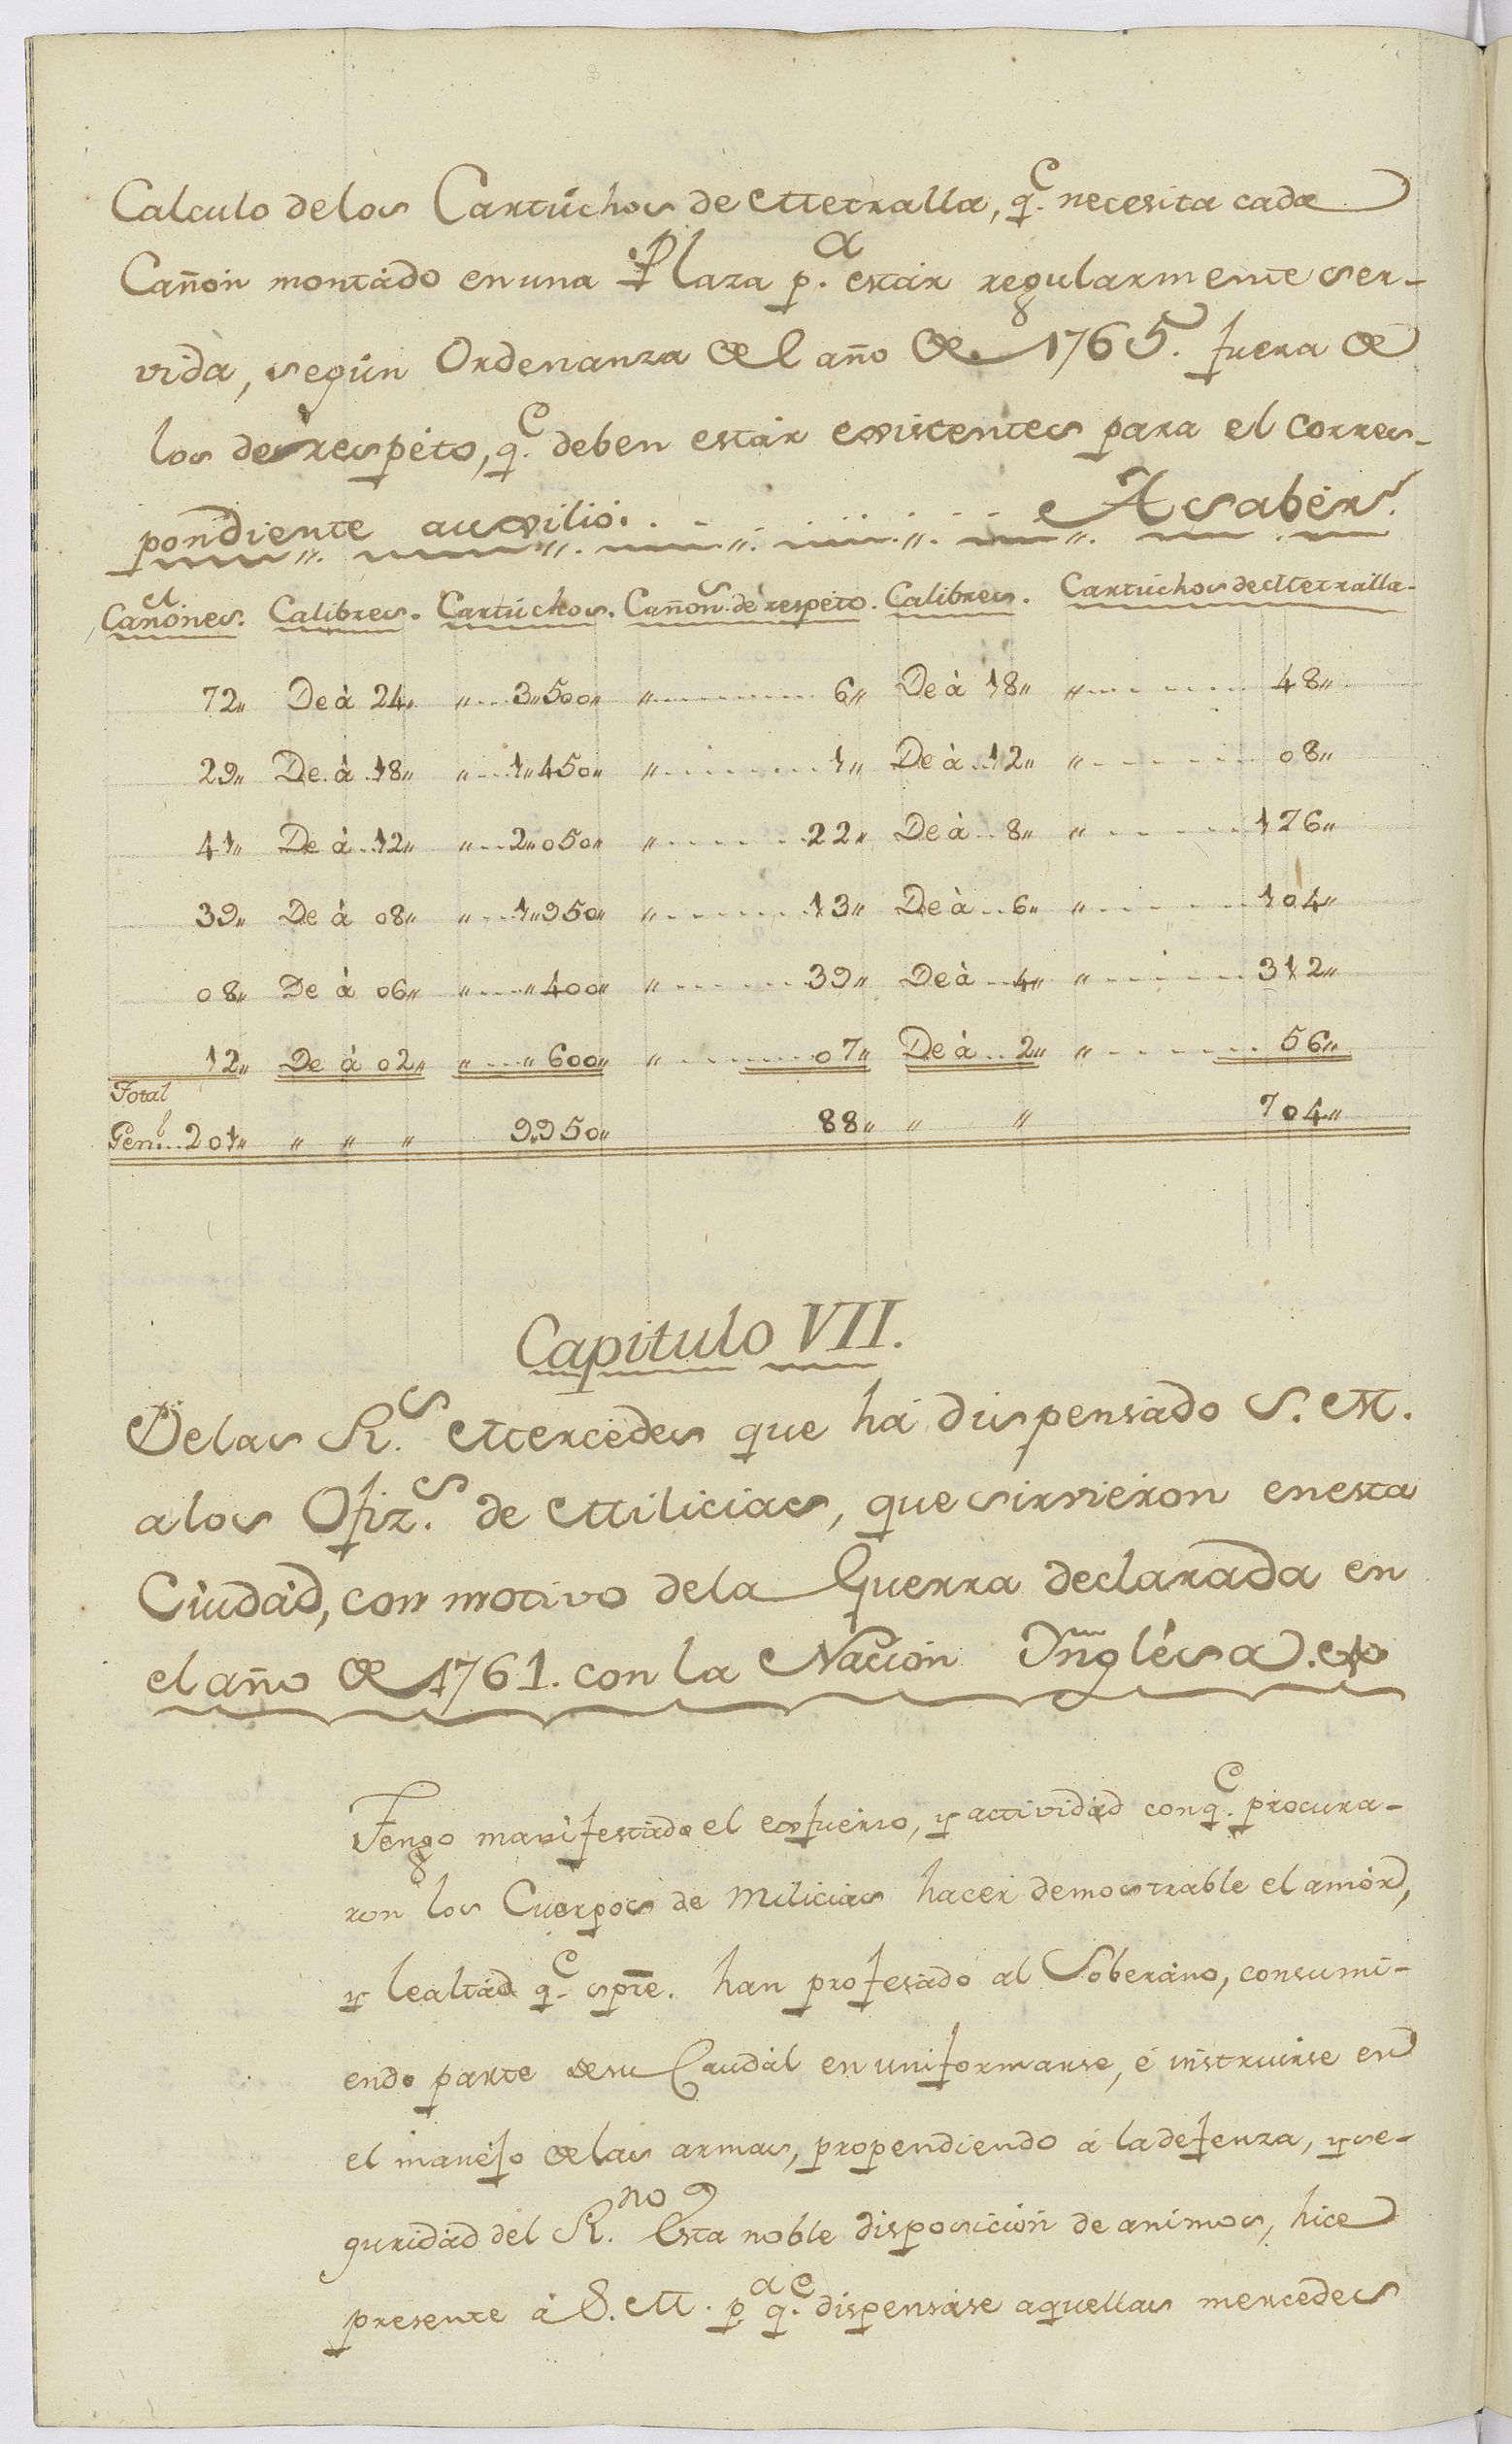 Calculo de los Cartuchos de Metralla, q.e necesita cada
Cañon montado en una Plaza p.a estár regularmente ser-
vida, según Ordenanza del año de 1765. fuera de
los de respéto, q.e deben estár existentes para el corres-
pondiente auxilio. . . . . . . . . . . . A sabér.
Cañónes. Calibres. Cartúchos. Cañon.s de respéto. Calibres. Cartúchos de Metralla.
72,, De à 24,, ,,....3,,500,, ,,............6,, De à 18,, ,,............48,,
29,, De à 18,, ,,....1,,450,, ,,............1,, De à 12,, ,,............08,,
41,, De à 12,, ,,....2,,050,, ,,............22,, De à 8,, ,,............176,,
39,, De à 08,, ,,....1,,950,, ,,............13,, De à 6,, ,,............104,,
08,, De à 06,, ,,....,,400,, ,,............39,, De à 4,, ,,............312,,
12,, De à 02,, ,,....,,600,, ,,............07,, De à 2,, ,,............56,,
Total
Gen.l...201,, ,, ,, ,, 9,,950,, 88,, ,, ,, 704,,
Capitulo VII.
De las R.s Mercédes que há dispensádo S. M.
a los Ofiz.s de Milicias, que sirviéron en esta
Ciudád, con motivo de la Guerra declarada en
el año de 1761. con la Nación Ynglésa.
Tengo manifestádo el exfuerzo, y actividád con q.e procura-
ron los Cuerpos de Milicias hacer demostrable el amór,
y lealtád q.e spre. han profesádo al Soberáno, consumi-
endo parte de su Caudál en uniformarse, é instruirse en
el manéjo de las armas, propendiendo á la defenza, y se-
guridád del R.no Esta noble disposición de animos, hice
presente á S. M. p.a q.e dispensáse aquellas mercedes